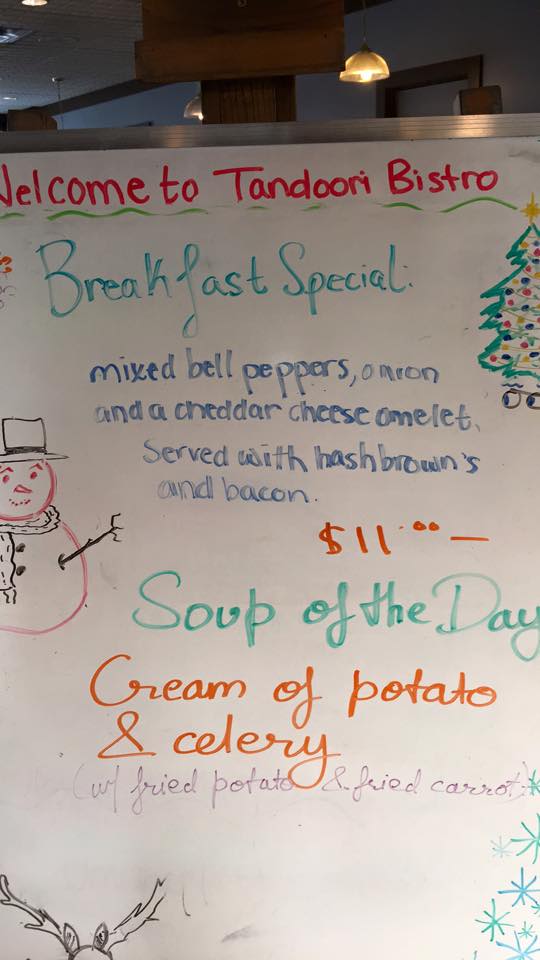 Welcome to Tandoori Bistro
Breakfast Special:
mixed bell peppers, onion
and a cheddar cheese omelet.
Served with hashbrown's
and bacon.
$11.00 —
Soup of the Day
Cream of potato
& celery
(w/ fried potato & fried carrot)